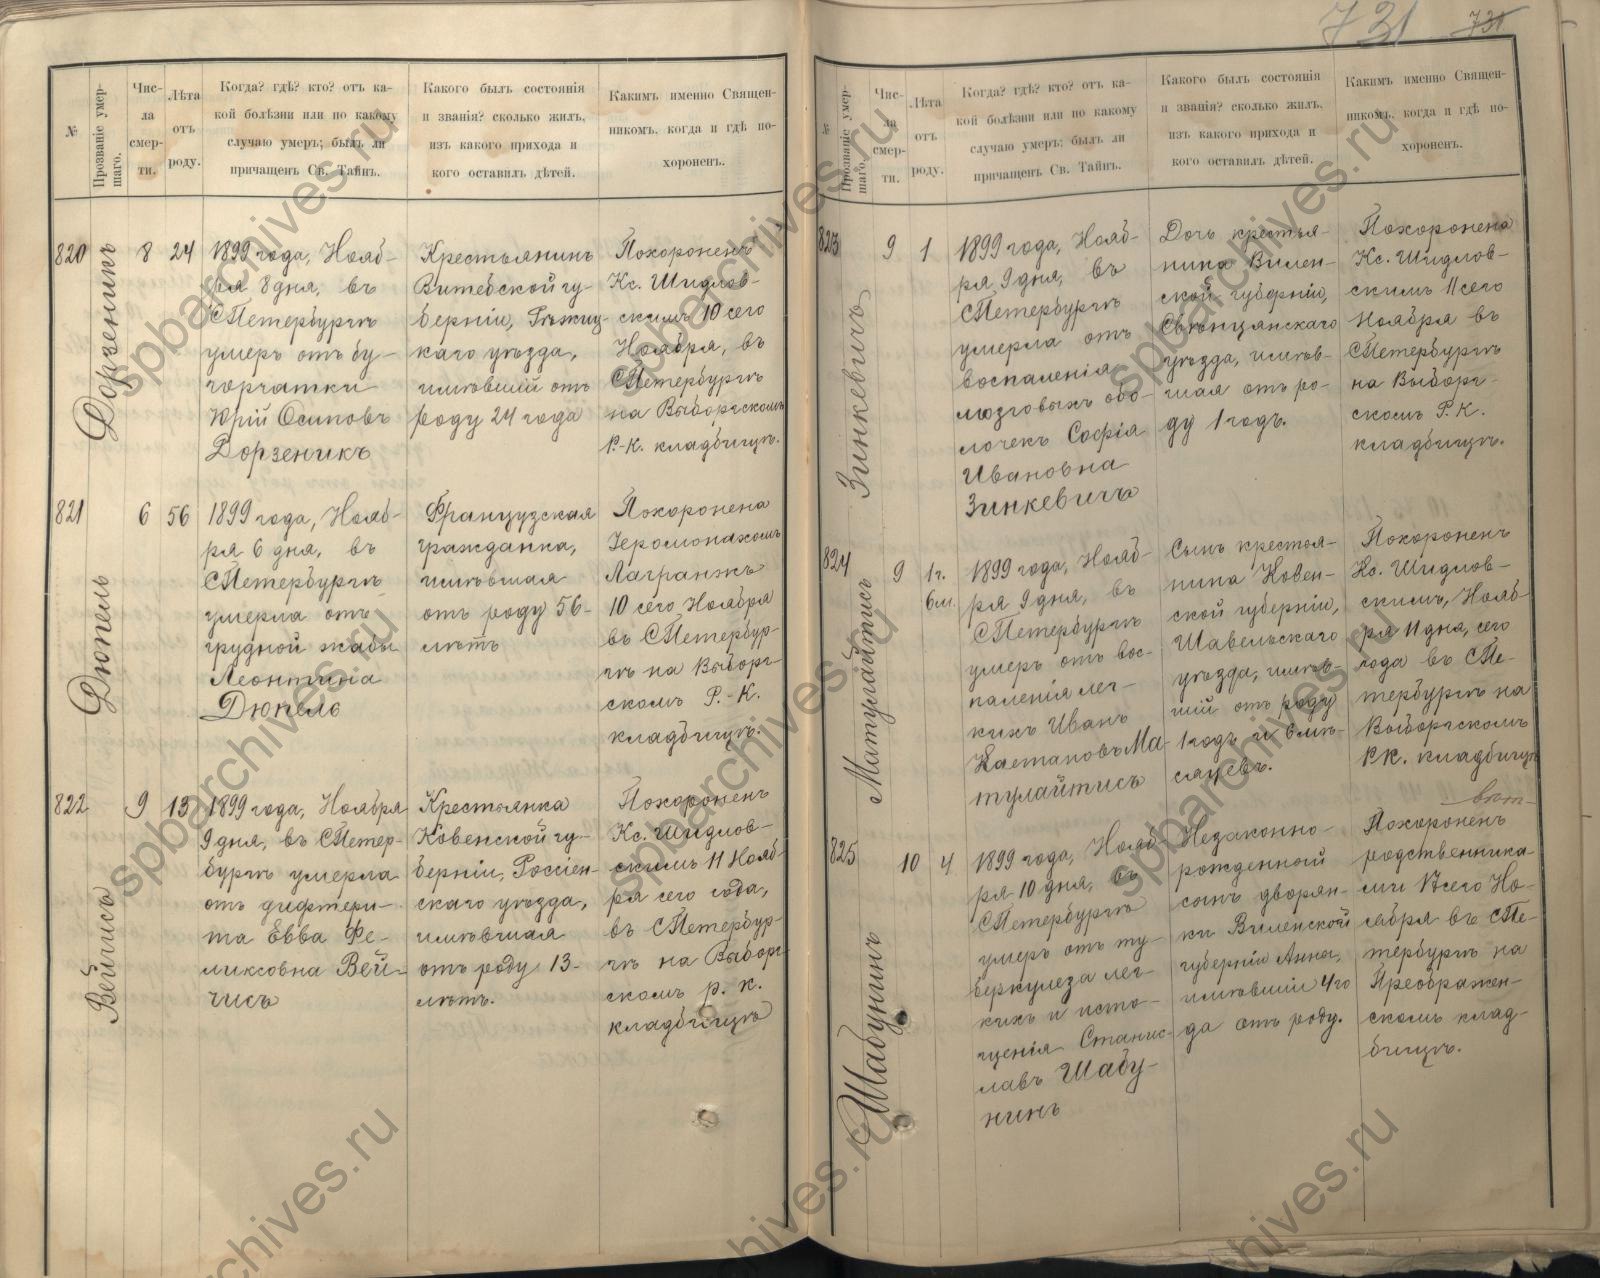 731 731
№
Прозваніе умер-
шаго.
Чис-
ла
смер-
ти.
Лѣта
отъ
роду.
Когда? гдѣ? кто? отъ ка-
кой болѣзни или по какому
случаю умеръ; былъ ли
причащенъ Св. Тайнъ.
Какого былъ состоянія
и званія? сколько жилъ,
изъ какого прихода и
кого оставилъ дѣтей.
Какимъ именно Священ-
никомъ, когда и гдѣ по-
хороненъ.
820
Дорзеникъ
8
24
1899 года, Нояб-
ря 8 дня, въ
СПетербургѣ
умеръ отъ бу-
горчатки
Юрій Осиповъ
Дорзеникъ
Крестьянинъ
Витебской гу-
берніи, Рѣжиц-
каго уѣзда,
имѣвшій отъ
роду 24 года
Похороненъ
Кс. Шидлов-
скимъ 10 сего
Ноября, въ
СПетербургѣ
на Выборгскомъ
Р.-К. кладбищѣ.
821
Дюпель
6
56
1899 года, Нояб-
ря 6 дня, въ
СПетербургѣ
умерла отъ
грудной жабы
Леонтина
Дюпель
Французская
гражданка,
имѣвшая
отъ роду 56-
лѣтъ
Похоронена
Іеромонахомъ
Лагранжъ
10 сего Ноября
въ СПетербур-
гѣ на Выборг-
скомъ Р.-К.
кладбищѣ.
822
Вейчисъ
9
13
1899 года, Ноября
9 дня, въ СПетер-
бургѣ умерла
отъ дифтери-
та Евва Фе-
ликсовна Вей-
чисъ
Крестьянка
Ковенской гу-
берніи, Россіен-
скаго уѣзда,
имѣвшая
отъ роду 13-
лѣтъ.
Похороненъ
Кс. Шидлов-
скимъ 11 Нояб-
ря сего года,
въ СПетербур-
гѣ на Выборг-
скомъ р. к.
кладбищѣ
№
Прозваніе умер-
шаго.
Чис-
ла
смер-
ти.
Лѣта
отъ
роду.
Когда? гдѣ? кто? отъ ка-
кой болѣзни или по какому
случаю умеръ; былъ ли
причащенъ Св. Тайнъ.
Какого былъ состоянія
и званія? сколько жилъ,
изъ какого прихода и
кого оставилъ дѣтей.
Какимъ именно Священ-
никомъ, когда и гдѣ по-
хороненъ.
823
Зинкевичъ
9
1
1899 года, Нояб-
ря 9 дня, въ
СПетербургѣ
умерла отъ
воспаленія
мозговыхъ обо-
лочекъ Софія
Ивановна
Зинкевичъ
Дочь крестья-
нина Вилен-
ской губерніи,
Свѣнцянскаго
уѣзда, имѣв-
шая отъ ро-
ду 1 годъ.
Похоронена
Кс. Шидлов-
скимъ 11 сего
Ноября въ
СПетербургѣ
на Выборг-
скомъ Р. К.
кладбищѣ.
824
Матулайтись
9
1 г.
6 м.
1899 года, Нояб-
ря 9 дня, въ
СПетербургѣ
умеръ отъ вос-
паленія лег-
кихъ Иванъ
Каетановъ Ма-
тулайтись
Сынъ крестья-
нина Ковен-
ской губерніи,
Шавельскаго
уѣзда, имѣв-
шій отъ роду
1 годъ и 6 мѣ-
сяцевъ.
Похороненъ
Кс. Шидлов-
скимъ, Нояб-
ря 11 дня, сего
года въ СПе-
тербургѣ на
Выборгскомъ
Р.К. кладбищѣ
825
Шабунинъ
10
4
1899 года, Нояб-
ря 10 дня, въ
СПетербургѣ
умеръ отъ ту-
беркулеза лег-
кихъ и исто-
щенія Станис-
лавъ Шабу-
нинъ
Незаконно-
рожденный
сынъ дворян-
ки Виленской
губерніи Анны,
имѣвшій 4 го
да отъ роду.
Похороненъ
родственника-
ми 12 сего Но-
ября въ СПе-
тербургѣ на
Преображен-
скомъ клад-
бищѣ.
spbarchives.ru
spbarchives.ru
spbarchives.ru
spbarchives.ru
spbarchives.ru
spbarchives.ru